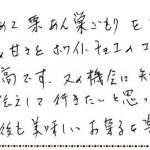 めて 栗あん巣ごもり を
甘さと ホワイトチョコのコ
高です。又の機会に 知
伝えして行きたいと思っ
後も美味しいお菓子を